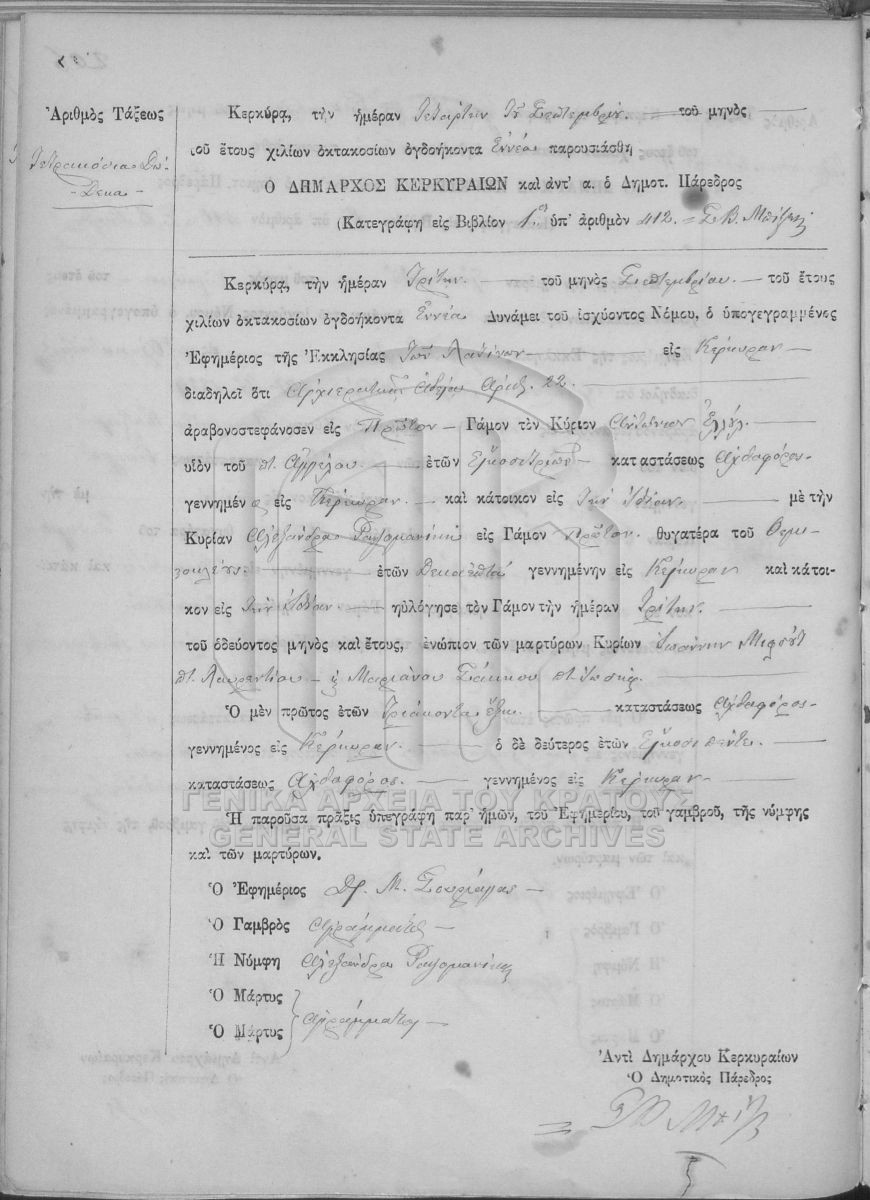 Ἀριθμὸς Τάξεως
Τετρακόσια Δώ-
- Δεκα -
Κερκύρᾳ, τὴν ἡμέραν Τετάρτην 7βρίου τοῦ μηνὸς
τοῦ ἔτους χιλίων ὀκτακοσίων ὀγδοήκοντα Ἐννέα παρουσιάσθη
Ὁ ΔΗΜΑΡΧΟΣ ΚΕΡΚΥΡΑΙΩΝ καὶ ἀντ' α. ὁ Δημοτ. Πάρεδρος
(Κατεγράφη εἰς Βιβλίον 1ον ὑπ' ἀριθμὸν 412.
Κερκύρᾳ, τὴν ἡμέραν Τρίτην. τοῦ μηνὸς Σεπτεμβρίου. τοῦ ἔτους
χιλίων ὀκτακοσίων ὀγδοήκοντα Ἐννέα Δυνάμει τοῦ ἰσχύοντος Νόμου, ὁ ὑπογεγραμμένος
Ἐφημέριος τῆς Ἐκκλησίας Τῶν Λατίνων εἰς Κέρκυραν
διαδηλοῖ ὅτι Ἀρχιερατικῇ ἀδείᾳ Ἀριθ. 22.
ἀραβονοστεφάνοσεν εἰς Πρῶτον Γάμον τὸν Κύριον Ἀντώνιον Ἐλλούλ.
υἱὸν τοῦ πτ Ἀγγέλου. ἐτῶν Εἴκοσι τριῶν καταστάσεως Ἀχθοφόρος
γεννημέν ος εἰς Κέρκυραν. καὶ κάτοικον εἰς Τὴν Ἰδίαν. μὲ τὴν
Κυρίαν Ἀλεξάνδρα εἰς Γάμον Πρῶτον. θυγατέρα τοῦ Θεμι
στοκλέους. ἐτῶν Δεκαεπτά γεννημένην εἰς Κέρκυραν καὶ κάτοι-
κον εἰς Τὴν Ἰδίαν. ηὐλόγησε τὸν Γάμον τὴν ἡμέραν Τρίτην.
τοῦ ὁδεύοντος μηνὸς καὶ ἔτους, ἐνώπιον τῶν μαρτύρων Κυρίων Ἰωάννην Μιφσούτ
πτ Λαυρεντίου Μαριάνου πτ Ἰωσήφ.
Ὁ μὲν πρῶτος ἐτῶν Τριάκοντα ἕξ. καταστάσεως Ἀχθοφόρος
γεννημένος εἰς Κέρκυραν. ὁ δὲ δεύτερος ἐτῶν Εἴκοσι πέντε.
καταστάσεως Ἀχθοφόρος. γεννημένος εἰς Κέρκυραν
ΓΕΝΙΚΑ ΑΡΧΕΙΑ ΤΟΥ ΚΡΑΤΟΥΣ
Ἡ παροῦσα πρᾶξις ὑπεγράφη παρ' ἡμῶν, τοῦ Ἐφημερίου, τοῦ γαμβροῦ, τῆς νύμφης
GENERAL STATE ARCHIVES
καὶ τῶν μαρτύρων.
Ὁ Ἐφημέριος Δ. Μ.
Ὁ Γαμβρὸς ἀγράμματος
Ἡ Νύμφη Ἀλεξάνδρα
Ὁ Μάρτυς
Ὁ Μάρτυς ἀγράμματοι
Ἀντὶ Δημάρχου Κερκυραίων
Ὁ Δημοτικὸς Πάρεδρος